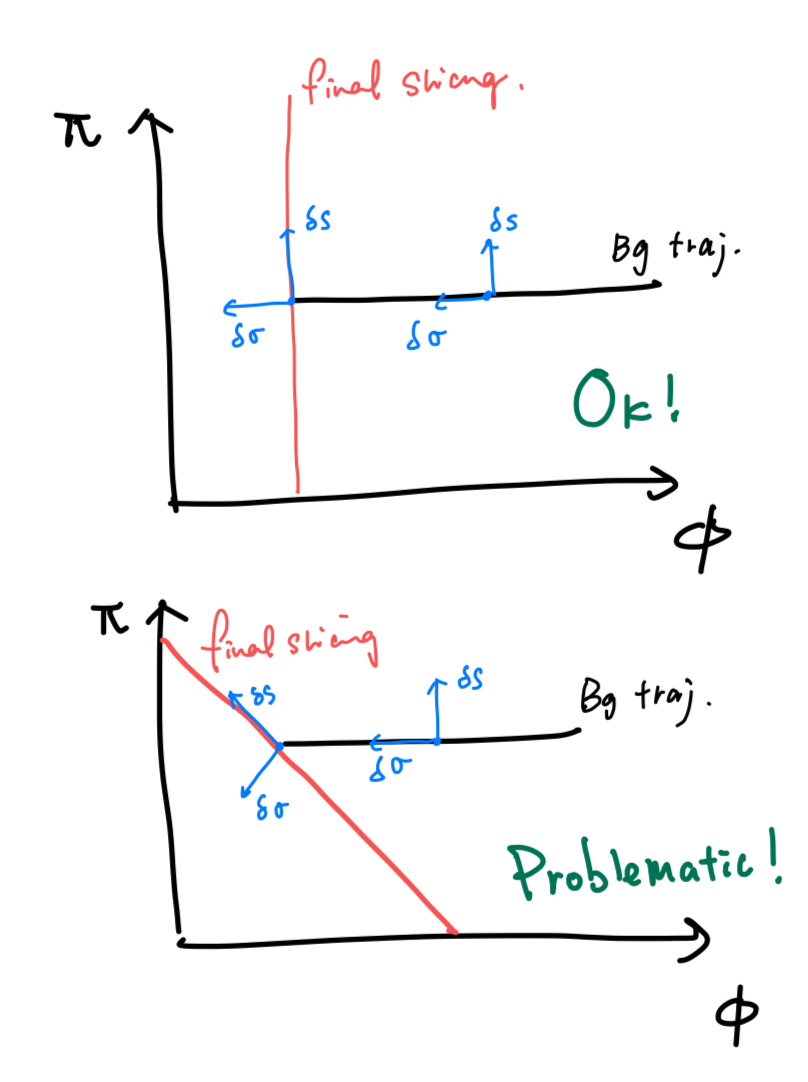 final slicing.
π
δs
δs
Bg traj.
δσ
δσ
Ok!
ϕ
π
final slicing
δs
δs
Bg traj.
δσ
δσ
Problematic!
ϕ